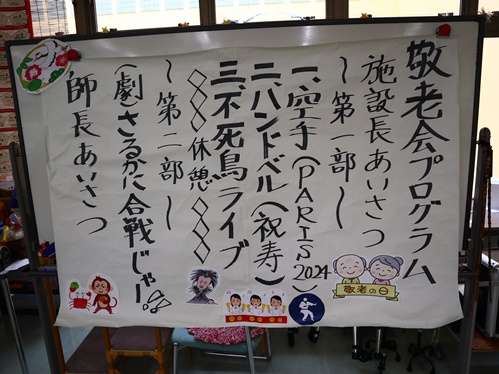 敬老会プログラム
施設長あいさつ
～第一部～
一、空手(PARIS2024)
二、ハンドベル(祝寿)
三、不死鳥ライブ
◇◇◇休憩◇◇◇◇
～第二部～
(劇)さるかに合戦じゃー!
師長あいさつ
敬老の日